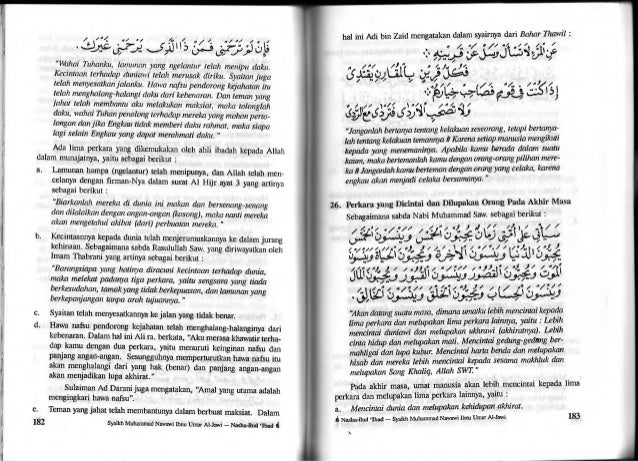 فَإِنْ لَمْ تَرْحَمْنِيْ فَمَنْ ذَا الَّذِيْ يَرْحَمُنِيْ غَيْرُكَ.
"Wahai Tuhanku, lamunan yang ngelantur telah menipu daku.
Kecintaan terhadap duniawi telah merusak diriku. Syaitan juga
telah menyesatkan jalanku. Hawa nafsu pendorong kejahatan itu
telah menghalang-halangi daku dari kebenaran. Dan teman yang
jahat telah membantu aku melakukan maksiat, maka tolonglah
daku, wahai Tuhan penolong terhadap mereka yang mohon perto-
longan dan jika Engkau tidak memberi daku rahmat, maka siapa
lagi selain Engkau yang dapat merahmati daku."
Ada lima perkara yang dikemukakan oleh ahli ibadah kepada Allah
dalam munajatnya, yaitu sebagai berikut :
a. Lamunan hampa (ngelantur) telah menipunya, dan Allah telah men-
celanya dengan firman-Nya dalam surat Al Hijr ayat 3 yang artinya
sebagai berikut :
"Biarkanlah mereka di dunia ini makan dan bersenang-senang
dan dilalaikan dengan angan-angan (kosong), maka nanti mereka
akan mengetahui akibat (dari) perbuatan mereka."
b. Kecintaannya kepada dunia telah menjerumuskannya ke dalam jurang
kehinaan. Sebagaimana sabda Rasulullah Saw. yang diriwayatkan oleh
Imam Thabrani yang artinya sebagai berikut :
"Barangsiapa yang hatinya diracuni kecintaan terhadap dunia,
maka melekat padanya tiga perkara, yaitu sengsara yang tiada
berkesudahan, tamak yang tidak berkepuasan, dan lamunan yang
berkepanjangan tanpa arah tujuannya."
c. Syaitan telah menyesatkannya ke jalan yang tidak benar.
d. Hawa nafsu pendorong kejahatan telah menghalang-halanginya dari
kebenaran. Dalam hal ini Ali ra. berkata, "Aku merasa khawatir terha-
dap kamu dengan dua perkara, yaitu menuruti keinginan nafsu dan
panjang angan-angan. Sesungguhnya memperturutkan hawa nafsu itu
akan menghalangi dari yang hak (benar) dan panjang angan-angan
akan menjadikan lupa akhirat."
Sulaiman Ad Darani juga mengatakan, "Amal yang utama adalah
mengingkari hawa nafsu".
e. Teman yang jahat telah membantunya dalam berbuat maksiat. Dalam
182 Syaikh Muhammad Nawawi Ibnu Umar Al-Jawi — Nasha-ihul 'Ibad
hal ini Adi bin Zaid mengatakan dalam syairnya dari Bahar Thawil :
عَنِ الْمَرْءِ لَا تَسْأَلْ وَسَلْ عَنْ قَرِيْنِهِ
فَكُلُّ قَرِيْنٍ بِالْمُقَارِنِ يَقْتَدِيْ
إِذَا كُنْتَ فِيْ قَوْمٍ فَصَاحِبْ خِيَارَهُمْ
وَلَا تَصْحَبِ الْأَرْدَى فَتَرْدَى مَعَ الرَّدِيْ
"Janganlah bertanya tentang kelakuan seseorang, tetapi bertanya-
lah tentang kelakuan temannya # Karena setiap manusia mengikuti
kepada yang menemaninya. Apabila kamu berada dalam suatu
kaum, maka bertemanlah kamu dengan orang-orang pilihan mere-
ka # Janganlah kamu berteman dengan orang yang celaka, karena
engkau akan menjadi celaka bersamanya."
26. Perkara yang Dicintai dan Dilupakan Orang Pada Akhir Masa
Sebagaimana sabda Nabi Muhammad Saw. sebagai berikut :
سَيَأْتِيْ عَلَى أُمَّتِيْ زَمَانٌ يُحِبُّوْنَ الْخَمْسَ وَيَنْسَوْنَ الْخَمْسَ
يُحِبُّوْنَ الدُّنْيَا وَيَنْسَوْنَ الْآخِرَةَ وَيُحِبُّوْنَ الْحَيَاةَ وَيَنْسَوْنَ
الْمَوْتَ وَيُحِبُّوْنَ الْقُصُوْرَ وَيَنْسَوْنَ الْقُبُوْرَ وَيُحِبُّوْنَ الْمَالَ
وَيَنْسَوْنَ الْحِسَابَ وَيُحِبُّوْنَ الْخَلْقَ وَيَنْسَوْنَ الْخَالِقَ.
"Akan datang suatu masa, dimana umatku lebih mencintai kepada
lima perkara dan melupakan lima perkara lainnya, yaitu : Lebih
mencintai duniawi dan melupakan ukhrawi (akhiratnya). Lebih
cinta hidup dan melupakan mati. Mencintai gedung-gedung ber-
mahligai dan lupa kubur. Mencintai harta benda dan melupakan
hisab dan mereka lebih mencintai kepada sesama makhluk dan
melupakan Sang Khaliq, Allah SWT."
Pada akhir masa, umat manusia akan lebih mencintai kepada lima
perkara dan melupakan lima perkara lainnya, yaitu :
a. Mencintai dunia dan melupakan kehidupan akhirat.
Nasha-ihul 'Ibad — Syaikh Muhammad Nawawi Ibnu Umar Al-Jawi 183